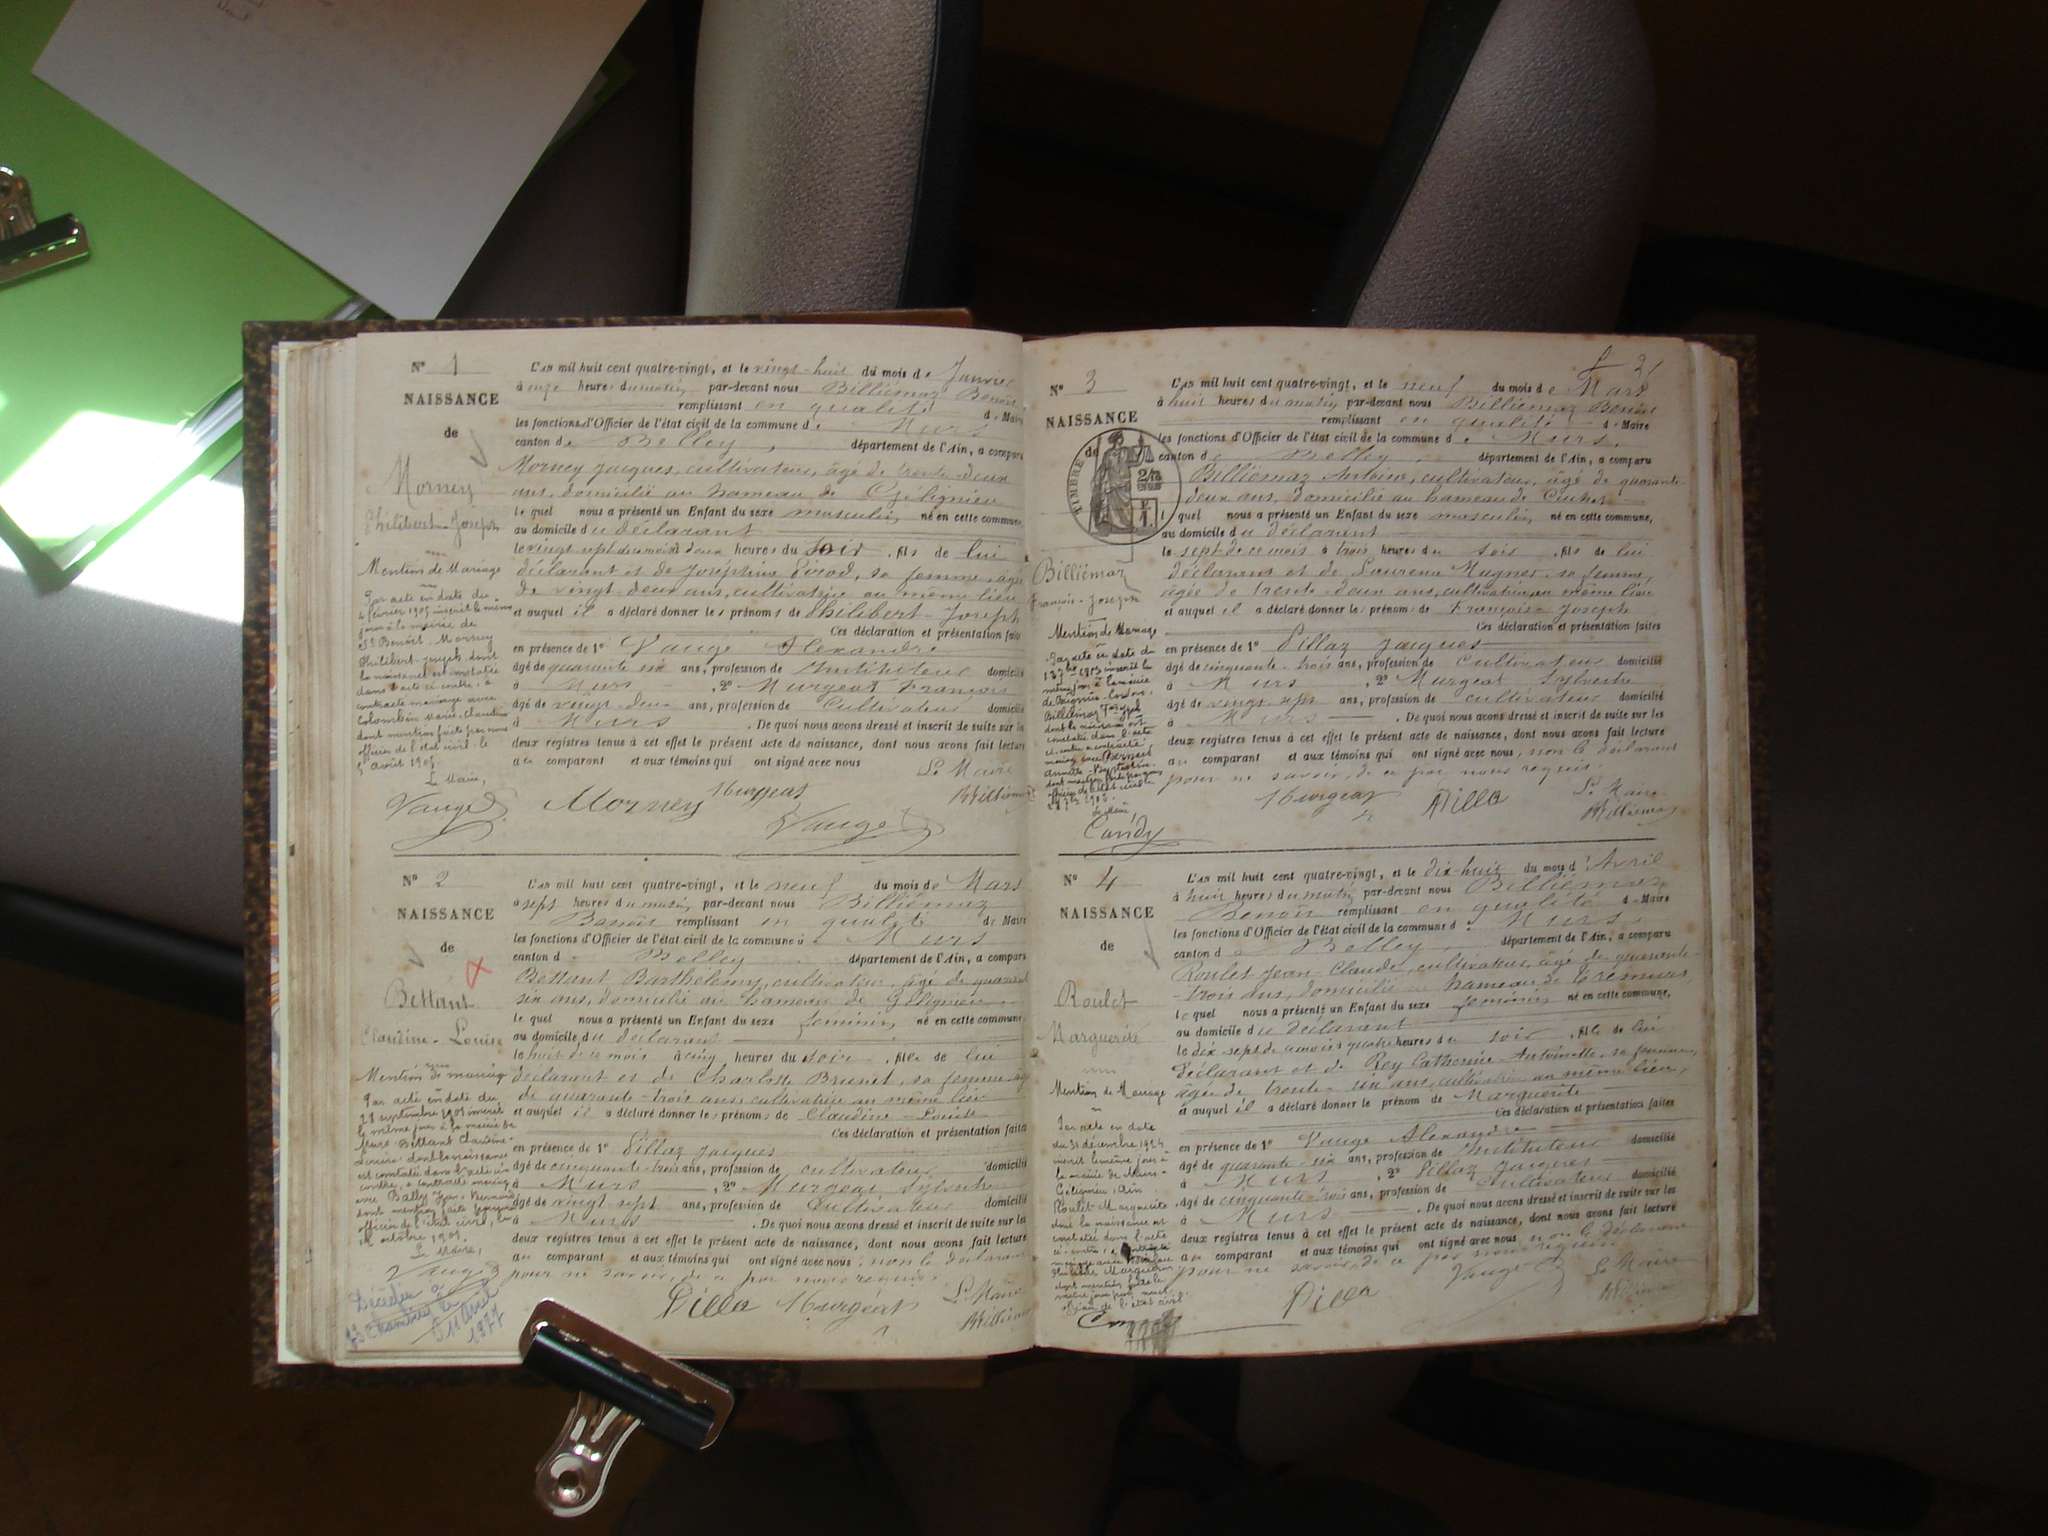 N° 1
NAISSANCE
de
Morney
Philibert-Joseph
Mention de Mariage
Par acte en date du
février 1905 inscrit le même
jour à la mairie de
St Benoît Morney
Philibert-Joseph dont
la naissance est constatée
dans l'acte ci-contre, a
contracté mariage avec
Colombin Marie-Claudine
dont mention faite par nous
officier de l'état civil le
août 1905.
Le Maire,
Vauge
L'an mil huit cent quatre-vingt, et le vingt-huit du mois de Janvier
à onze heures du matin, par-devant nous Billiémaz Benoît
remplissant en qualité de Maire
les fonctions d'Officier de l'état civil de la commune de Murs
canton de Belley, département de l'Ain, a comparu
Morney Jacques, cultivateur, âgé de trente-deux
ans, domicilié au hameau de Gélignieu
lequel nous a présenté un Enfant du sexe masculin, né en cette commune,
au domicile du déclarant
le vingt sept du mois à deux heures du soir, fils de lui
déclarant et de Joséphine Pirod, sa femme, âgée
de vingt-deux ans, cultivatrice au même lieu
et auquel il a déclaré donner les prénoms de Philibert-Joseph
Ces déclaration et présentation faites
en présence de 1° Vauge Alexandre
âgé de quarante six ans, profession de Instituteur domicilié
à Murs, 2° Murgeat François
âgé de vingt-deux ans, profession de Cultivateur domicilié
à Murs. De quoi nous avons dressé et inscrit de suite sur les
deux registres tenus à cet effet le présent acte de naissance, dont nous avons fait lecture
au comparant et aux témoins qui ont signé avec nous
Le Maire
Morney Murgeat Vauge Billiémaz
N° 2
NAISSANCE
de
Bettant
Claudine-Louise
Mention de mariage
Par acte en date du
28 septembre 1901 inscrit
le même jour à la mairie de
Murs Bettant Claudine-
Louise dont la naissance
est constatée dans l'acte ci-
contre, a contracté mariage
avec Bally Jean-Bernard
dont mention faite par nous
officier de l'état civil, le
octobre 1901.
Le Maire,
Vauge
Décédée à
le
11 Avril
1977
L'an mil huit cent quatre-vingt, et le neuf du mois de Mars
à sept heures du matin, par-devant nous Billiémaz
Benoît remplissant en qualité de Maire
les fonctions d'Officier de l'état civil de la commune de Murs
canton de Belley département de l'Ain, a comparu
Bettant Barthélemy, cultivateur, âgé de quarante
six ans, domicilié au hameau de Gélignieu
lequel nous a présenté un Enfant du sexe féminin, né en cette commune,
au domicile du déclarant
le huit de ce mois à cinq heures du soir, fille de lui
déclarant et de Charlotte Brunet, sa femme âgée
de quarante-trois ans, cultivatrice au même lieu
et auquel il a déclaré donner les prénoms de Claudine-Louise
Ces déclaration et présentation faites
en présence de 1° Pillaz Jacques
âgé de cinquante-trois ans, profession de cultivateur domicilié
à Murs, 2° Murgeat Sylvestre
âgé de vingt sept ans, profession de Cultivateur domicilié
à Murs. De quoi nous avons dressé et inscrit de suite sur les
deux registres tenus à cet effet le présent acte de naissance, dont nous avons fait lecture
au comparant et aux témoins qui ont signé avec nous, non le déclarant
pour ne savoir, de ce par nous requis.
Pilla Murgeat Le Maire
Billiémaz
f. 2
N° 3
NAISSANCE
de
TIMBRE
Billiémaz
François-Joseph
Mention de Mariage
Candy
L'an mil huit cent quatre-vingt, et le neuf du mois de Mars
à huit heures du matin, par-devant nous Billiémaz Benoît
remplissant en qualité de Maire
les fonctions d'Officier de l'état civil de la commune de Murs,
canton de Belley, département de l'Ain, a comparu
Billiémaz Antoine, cultivateur, âgé de quarante-
deux ans, domicilié au hameau de
lequel nous a présenté un Enfant du sexe masculin, né en cette commune,
au domicile du déclarant
le sept de ce mois à trois heures du soir, fils de lui
déclarant et de Laurence Magner, sa femme,
âgée de trente-deux ans, cultivatrice au même lieu
et auquel il a déclaré donner les prénoms de François-Joseph
Ces déclaration et présentation faites
en présence de 1° Pillaz Jacques
âgé de cinquante-trois ans, profession de Cultivateur domicilié
à Murs, 2° Murgeat Sylvestre
âgé de vingt sept ans, profession de cultivateur domicilié
à Murs. De quoi nous avons dressé et inscrit de suite sur les
deux registres tenus à cet effet le présent acte de naissance, dont nous avons fait lecture
au comparant et aux témoins qui ont signé avec nous, non le déclarant
pour ne savoir, de ce par nous requis.
Murgeat Pilla Le Maire
Billiémaz
N° 4
NAISSANCE
de
Roulet
Marguerite
Mention de Mariage
Par acte en date
du 31 décembre 1924
inscrit le même jour à
la mairie de Murs-
Gélignieu, Ain
Roulet Marguerite
dont la naissance est
constatée dans l'acte
ci-contre, a contracté
L'an mil huit cent quatre-vingt, et le dix-huit du mois d'Avril
à huit heures du matin, par-devant nous Billiémaz
Benoît remplissant en qualité de Maire
les fonctions d'Officier de l'état civil de la commune de Murs,
canton de Belley, département de l'Ain, a comparu
Roulet Jean Claude, cultivateur, âgé de quarante-
trois ans, domicilié hameau de Crémurs,
lequel nous a présenté un Enfant du sexe féminin né en cette commune,
au domicile du déclarant
le dix-sept de ce mois à quatre heures du soir, fille de lui
déclarant et de Rey Catherine-Antoinette, sa femme,
âgée de trente-un ans, cultivatrice au même lieu,
et auquel il a déclaré donner le prénom de Marguerite
Ces déclaration et présentation faites
en présence de 1° Vauge Alexandre
âgé de quarante-six ans, profession de Instituteur domicilié
à Murs, 2° Pillaz Jacques
âgé de cinquante-trois ans, profession de Cultivateur domicilié
à Murs. De quoi nous avons dressé et inscrit de suite sur les
deux registres tenus à cet effet le présent acte de naissance, dont nous avons fait lecture
au comparant et aux témoins qui ont signé avec nous non le déclarant
pour ne savoir, de ce par nous requis.
Pilla Vauge Le Maire
Billiémaz